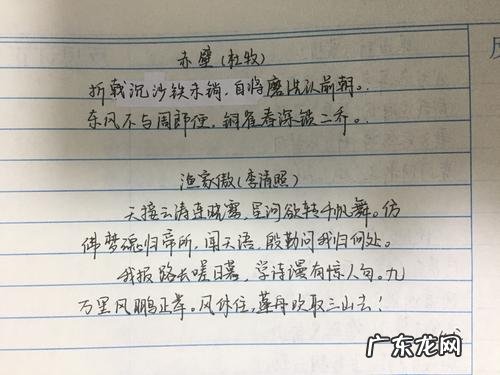 赤壁(杜牧)
折戟沉沙铁未销,自将磨洗认前朝。
东风不与周郎便,铜雀春深锁二乔。
渔家傲(李清照)
天接云涛连晓雾,星河欲转千帆舞。仿
佛梦魂归帝所,闻天语,殷勤问我归何处。
我报路长嗟日暮,学诗漫有惊人句。九
万里风鹏正举。风休住,蓬舟吹取三山去!
广东龙网